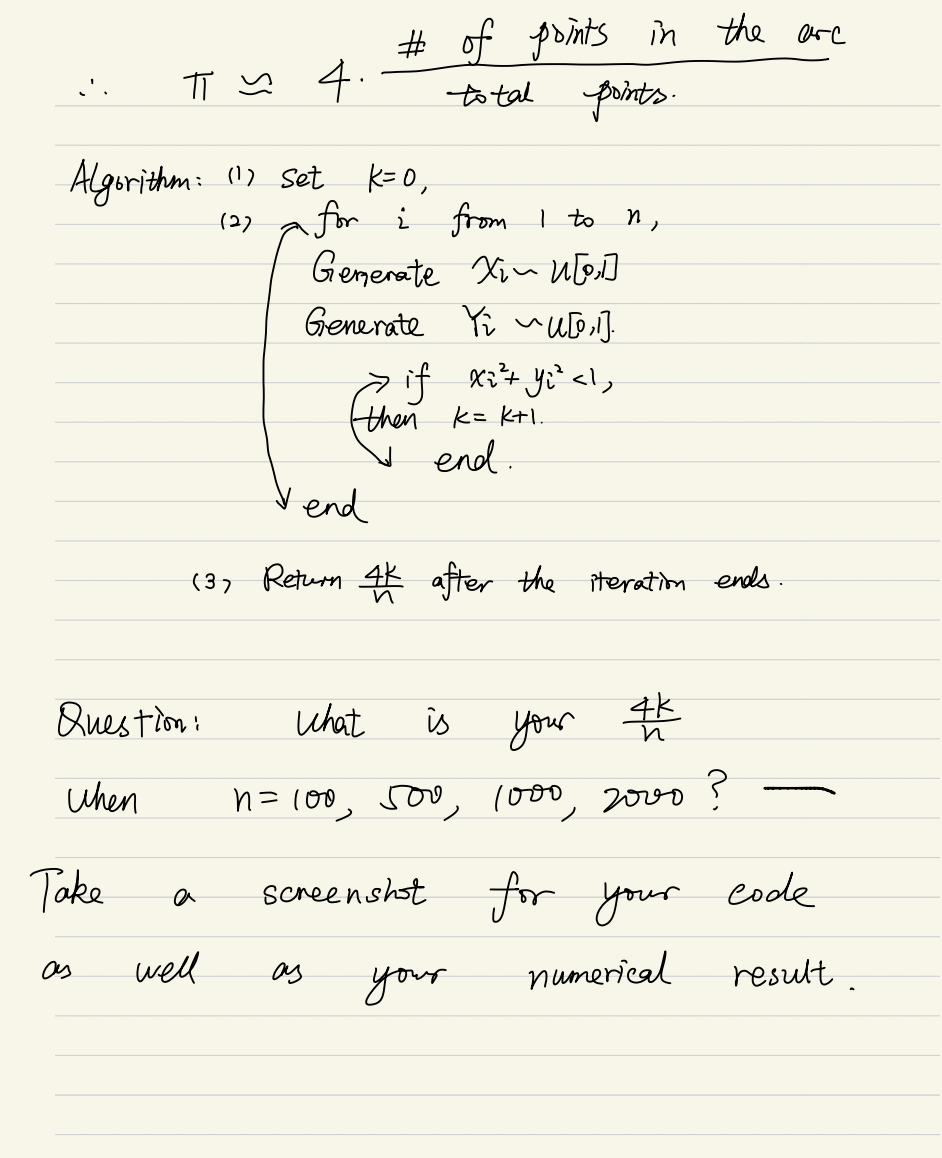 # of points in the arc
∴ π ≈ 4· ─────────
total points.
Algorithm: (1) set k=0,
(2) for i from 1 to n,
Generate Xi ~ U[0,1]
Generate Yi ~ U[0,1].
if xi²+ yi² <1,
then k= k+1.
end.
end
(3) Return 4k/n after the iteration ends.
Question: What is your 4k/n
when n= 100, 500, 1000, 2000 ? —
Take a screenshot for your code
as well as your numerical result.